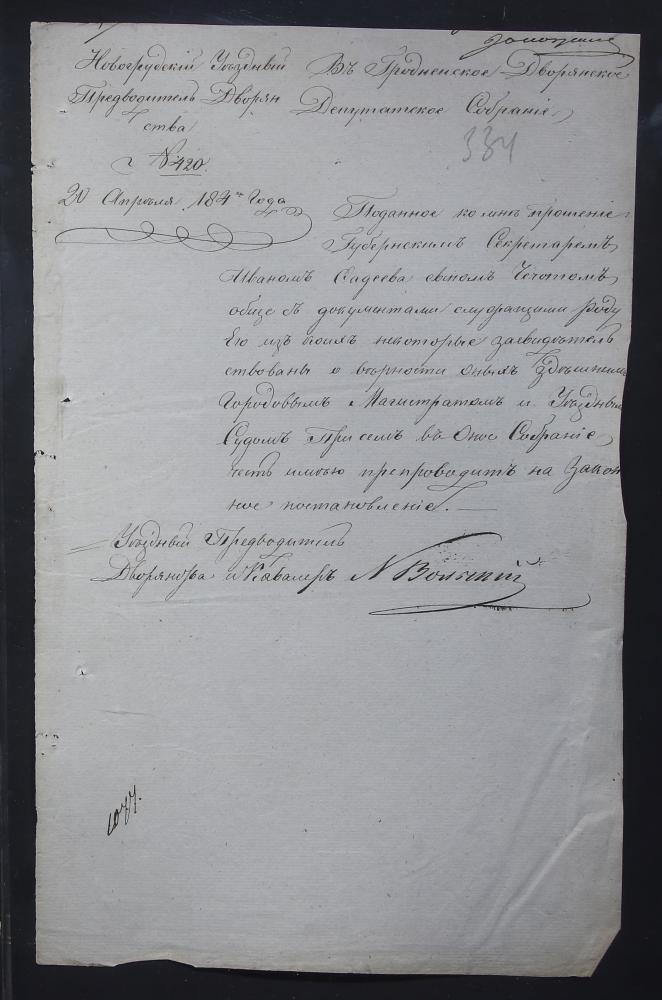 Новогрудскій Уѣздный
Предводитель Дворян
ства
№ 420.
20 Апрѣля 184 Года
Въ Гродненское Дворянское
Депутатское Собраніе
334
Поданное ко мнѣ прошеніе
Губернскимъ Секретаремъ
Иваномъ Фадеева сыномъ Чечотомъ
обще съ документами служащими роду
Его изъ коихъ некоторые засвидѣтель
ствованы о верности оныхъ здѣшнимъ
Городовымъ Магистратомъ и Уѣзднымъ
Судомъ При семъ въ Оное Собраніе
честь имѣю препроводить на Закон
ное постановленіе. —
Уѣздный Предводитель
Дворянства и Кавалеръ
1077.